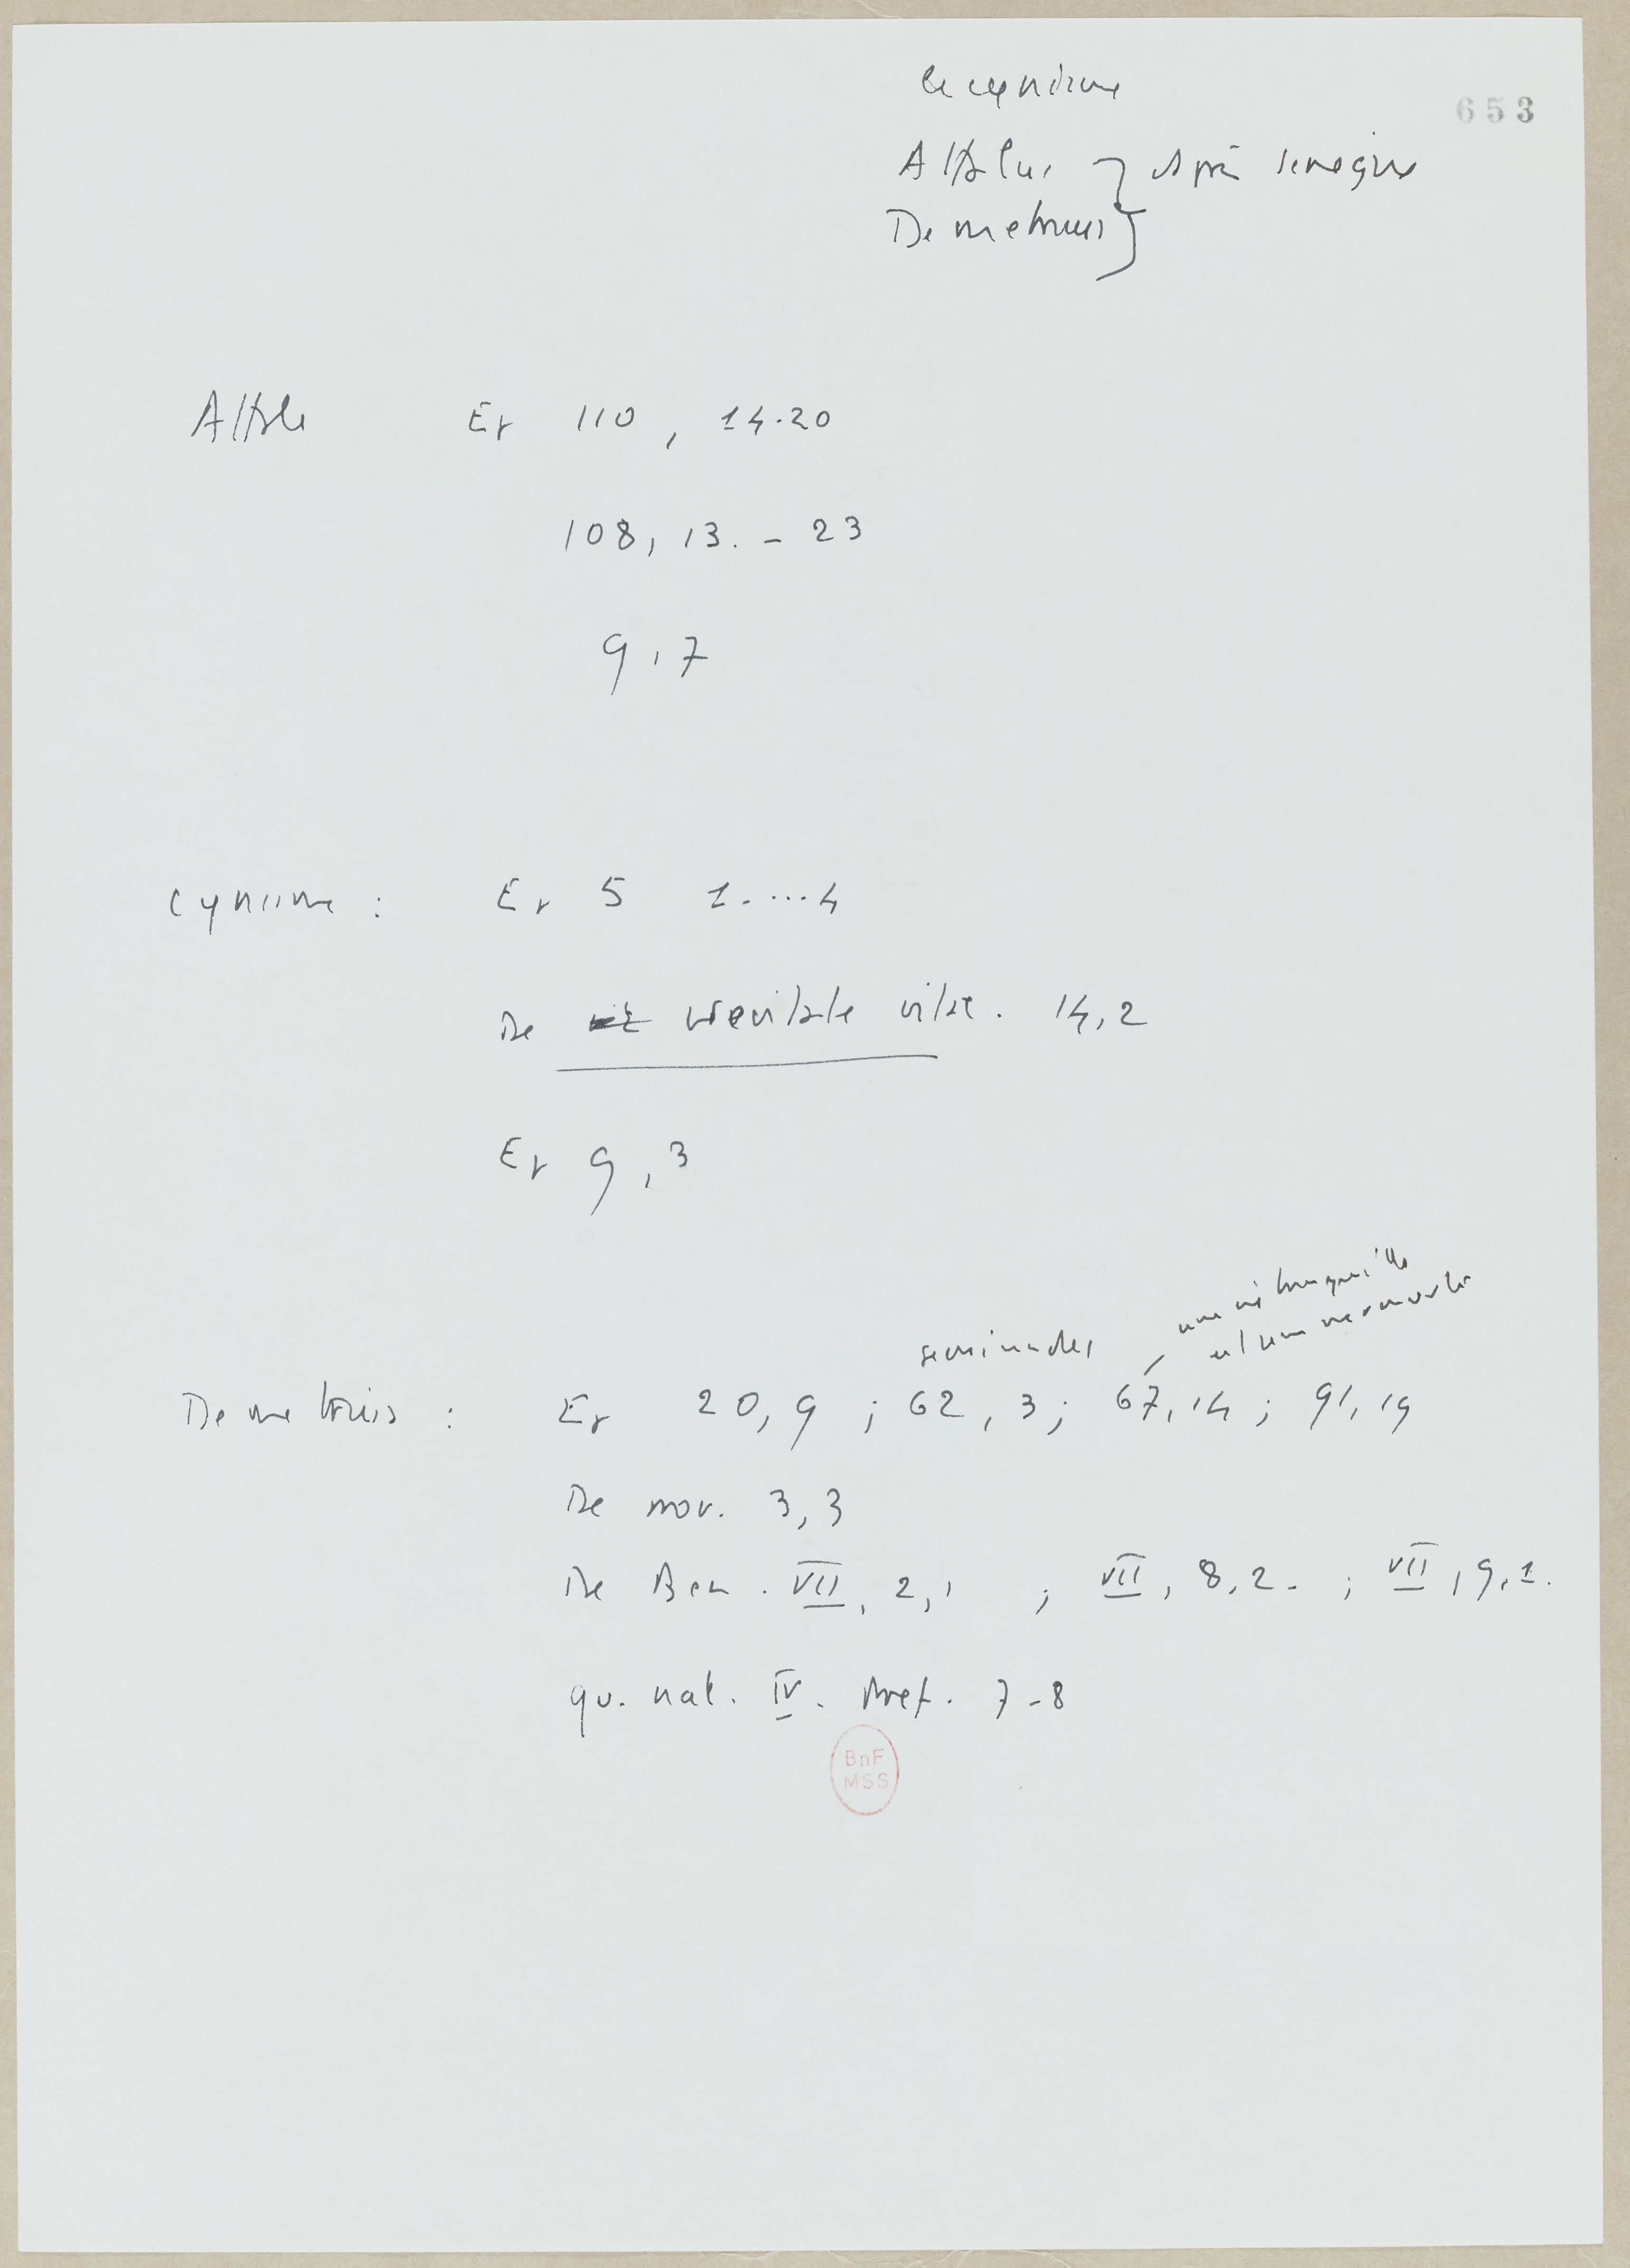 Le cynisme
653
Attalus } d'après Sénèque
Demetrius }
Attale Ep 110, 14.20
108, 13. - 23
9, 7
Cynisme : Ep 5 1. ... 4
De brevitate vitae. 14, 2
Ep 9, 3
une vie tranquille
est une mer morte
seminudus
Demetrius : Ep 20, 9 ; 62, 3 ; 67, 14 ; 91, 19
De prov. 3, 3
De Ben. VII, 2, 1 ; VII, 8, 2. ; VII, 9, 1.
qu. nat. IV. Pref. 7-8
BnF
MSS